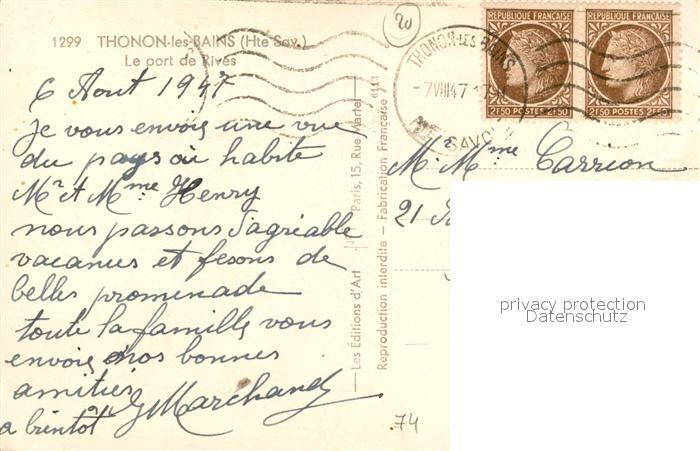 1299 THONON-les-BAINS (Hte Sav.)
Le port de Rives
6 Aout 1947
Je vous envoie une vue
du pays où habite
Mr et Mme Henry
nous passons d'agréable
vacances et fesons de
belles promenade
toute la famille vous
envoie nos bonnes
amitiés
a bientôt G Marchand
Les Editions d'Art
Paris, 15, Rue Martel
Reproduction interdite - Fabrication Française
20
THONON-LES-BAINS
-7 VIII 47
SAVOIE
REPUBLIQUE FRANÇAISE
2F50 POSTES 2F50
REPUBLIQUE FRANÇAISE
2F50 POSTES 2F50
Mr Mme Carrion
21
privacy protection
Datenschutz
74